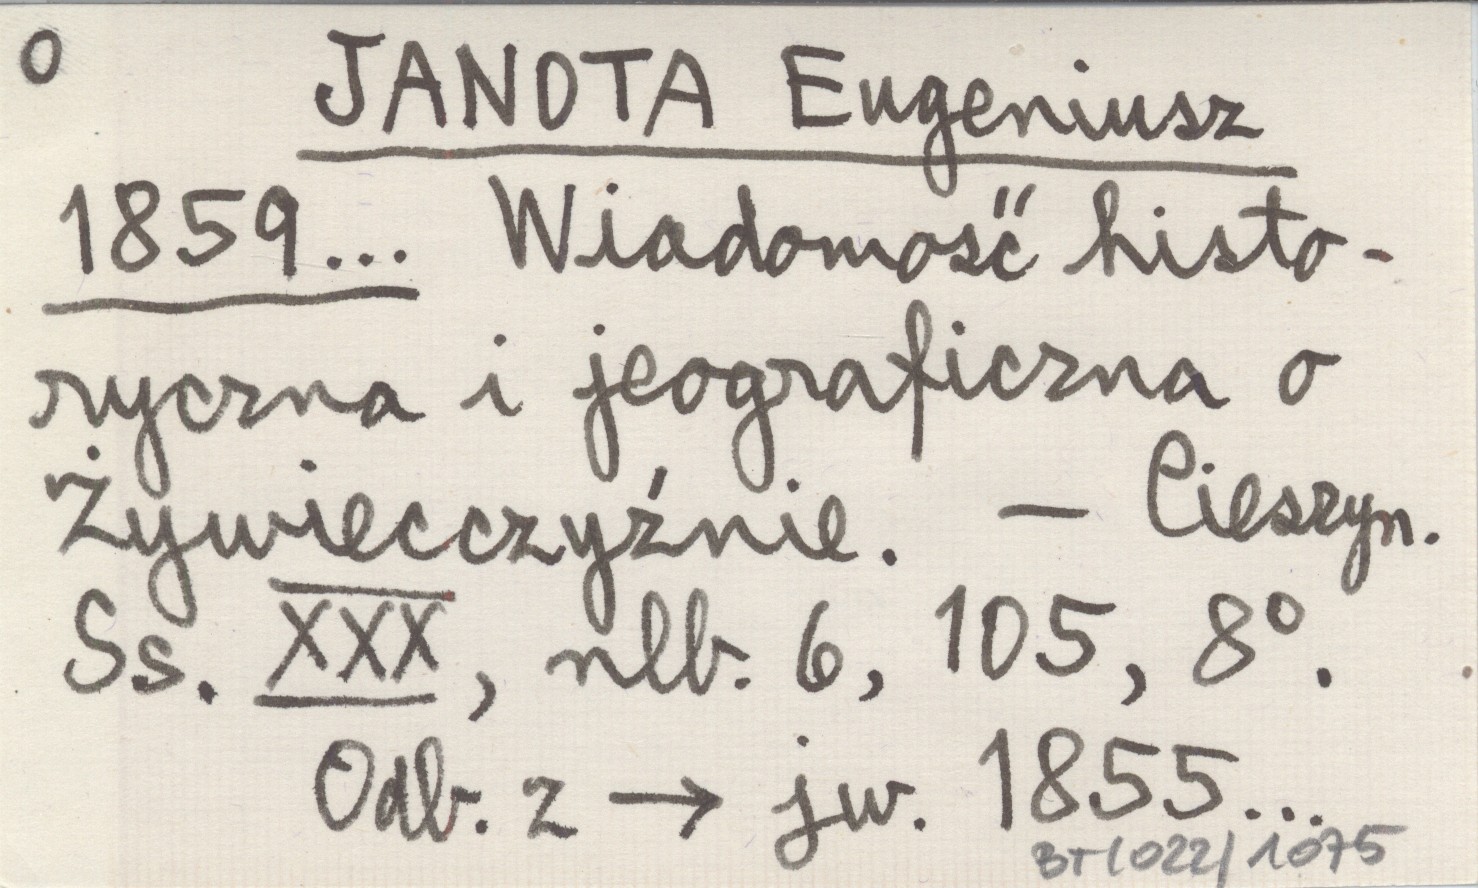 O
JANOTA Eugeniusz
1859... Wiadomość histo-
ryczna i jeograficzna o
Żywiecczyźnie. — Cieszyn.
Ss. XXX, nlb. 6, 105, 8°.
Odb. z → jw. 1855...
BT1022/1075